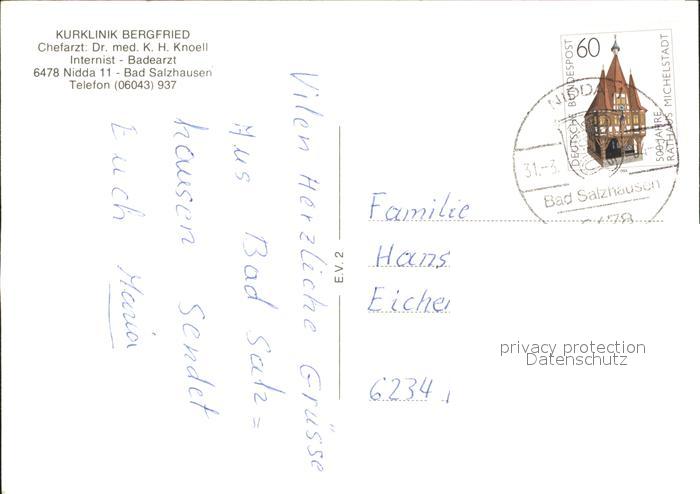 KURKLINIK BERGFRIED
Chefarzt: Dr. med. K. H. Knoell
Internist - Badearzt
6478 Nidda 11 - Bad Salzhausen
Telefon (06043) 937
Vilen Herzliche Grüsse
Aus Bad Salz=
hausen sendet
Euch Maria
E.V. 2
DEUTSCHE BUNDESPOST
60
500 JAHRE
RATHAUS MICHELSTADT
NIDDA
31.-3.
Bad Salzhausen
6478
Familie
Hans
Eiche
6234
privacy protection
Datenschutz